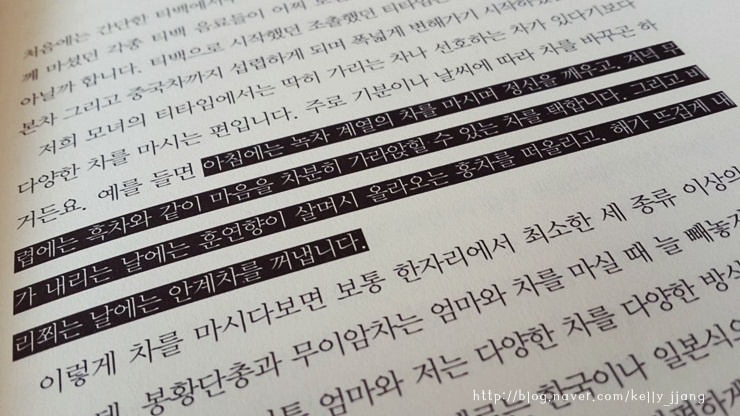 처음에는 간단한 티백에서
께 마셨던 각종 티백 음료들이 어찌
아닐까 합니다. 티백으로 시작했던 조촐했던 티타임
본차 그리고 중국차까지 섭렵하게 되며 폭넓게 변해가기 시작하
저희 모녀의 티타임에서는 딱히 가리는 차나 선호하는 차가 있다기보다
다양한 차를 마시는 편입니다. 주로 기분이나 날씨에 따라 차를 바꾸곤 하
거든요. 예를 들면 아침에는 녹차 계열의 차를 마시며 정신을 깨우고, 저녁 무
렵에는 흑차와 같이 마음을 차분히 가라앉힐 수 있는 차를 택합니다. 그리고 비
가 내리는 날에는 훈연향이 살며시 올라오는 홍차를 떠올리고, 해가 뜨겁게 내
리쬐는 날에는 안계차를 꺼냅니다.
이렇게 차를 마시다보면 보통 한자리에서 최소한 세 종류 이상의
데, 봉황단총과 무이암차는 엄마와 차를 마실 때 늘 빼놓지
엄마와 저는 다양한 차를 다양한 방식
한국이나 일본식으
http://blog.naver.com/kelly_jjang